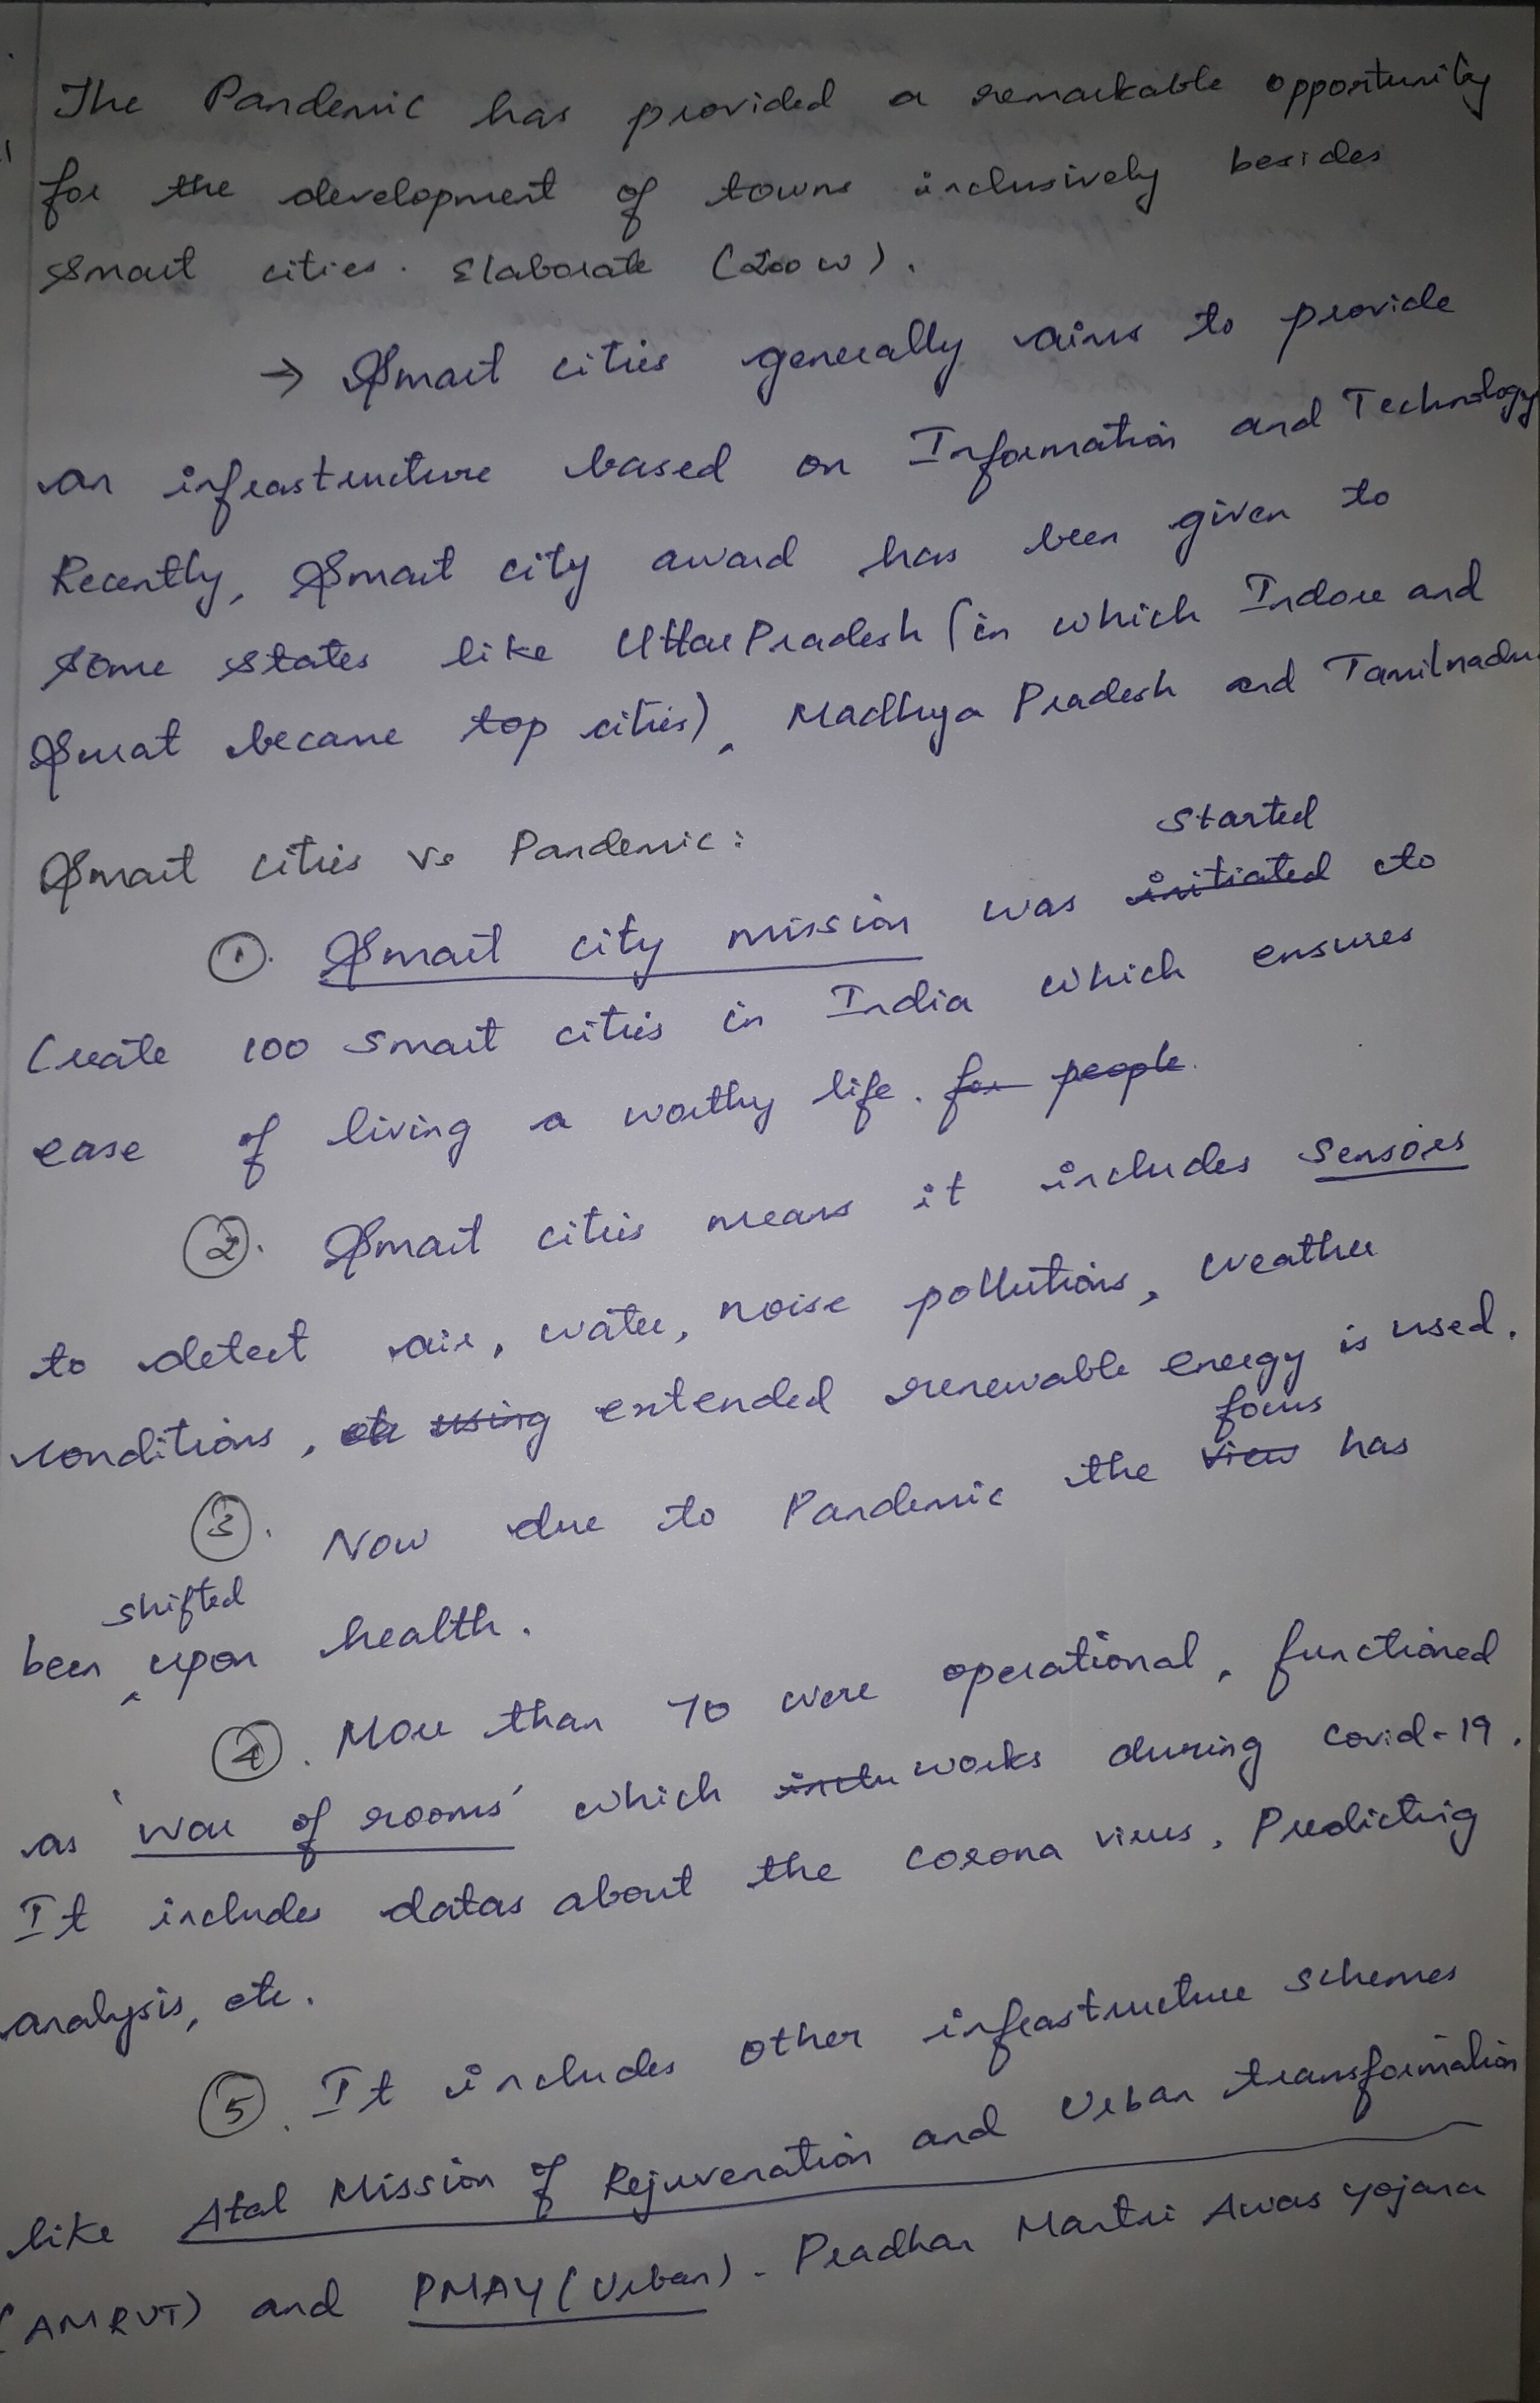 The Pandemic has provided a remarkable opportunity
for the development of towns inclusively besides
Smart cities. Elaborate (200 w).
→ Smart cities generally aims to provide
an infrastructure based on Information and Technology
Recently, Smart city award has been given to
some states like Uttar Pradesh (in which Indore and
Surat became top cities), Madhya Pradesh and Tamilnadu
Smart cities vs Pandemic:
①. Smart city mission was initiated started to
Create 100 smart cities in India which ensures
ease of living a worthy life. for people.
②. Smart cities means it includes sensors
to detect air, water, noise pollutions, weather
conditions, etc using extended renewable energy is used.
③. Now due to Pandemic the view focus has
been shifted upon health.
④. More than 70 were operational, functioned
as 'war of rooms' which works during covid-19.
It includes datas about the corona virus, Predicting
analysis, etc.
⑤. It includes other infrastructure schemes
like Atal Mission of Rejuvenation and Urban transformation
(AMRUT) and PMAY (Urban) - Pradhan Mantri Awas yojana